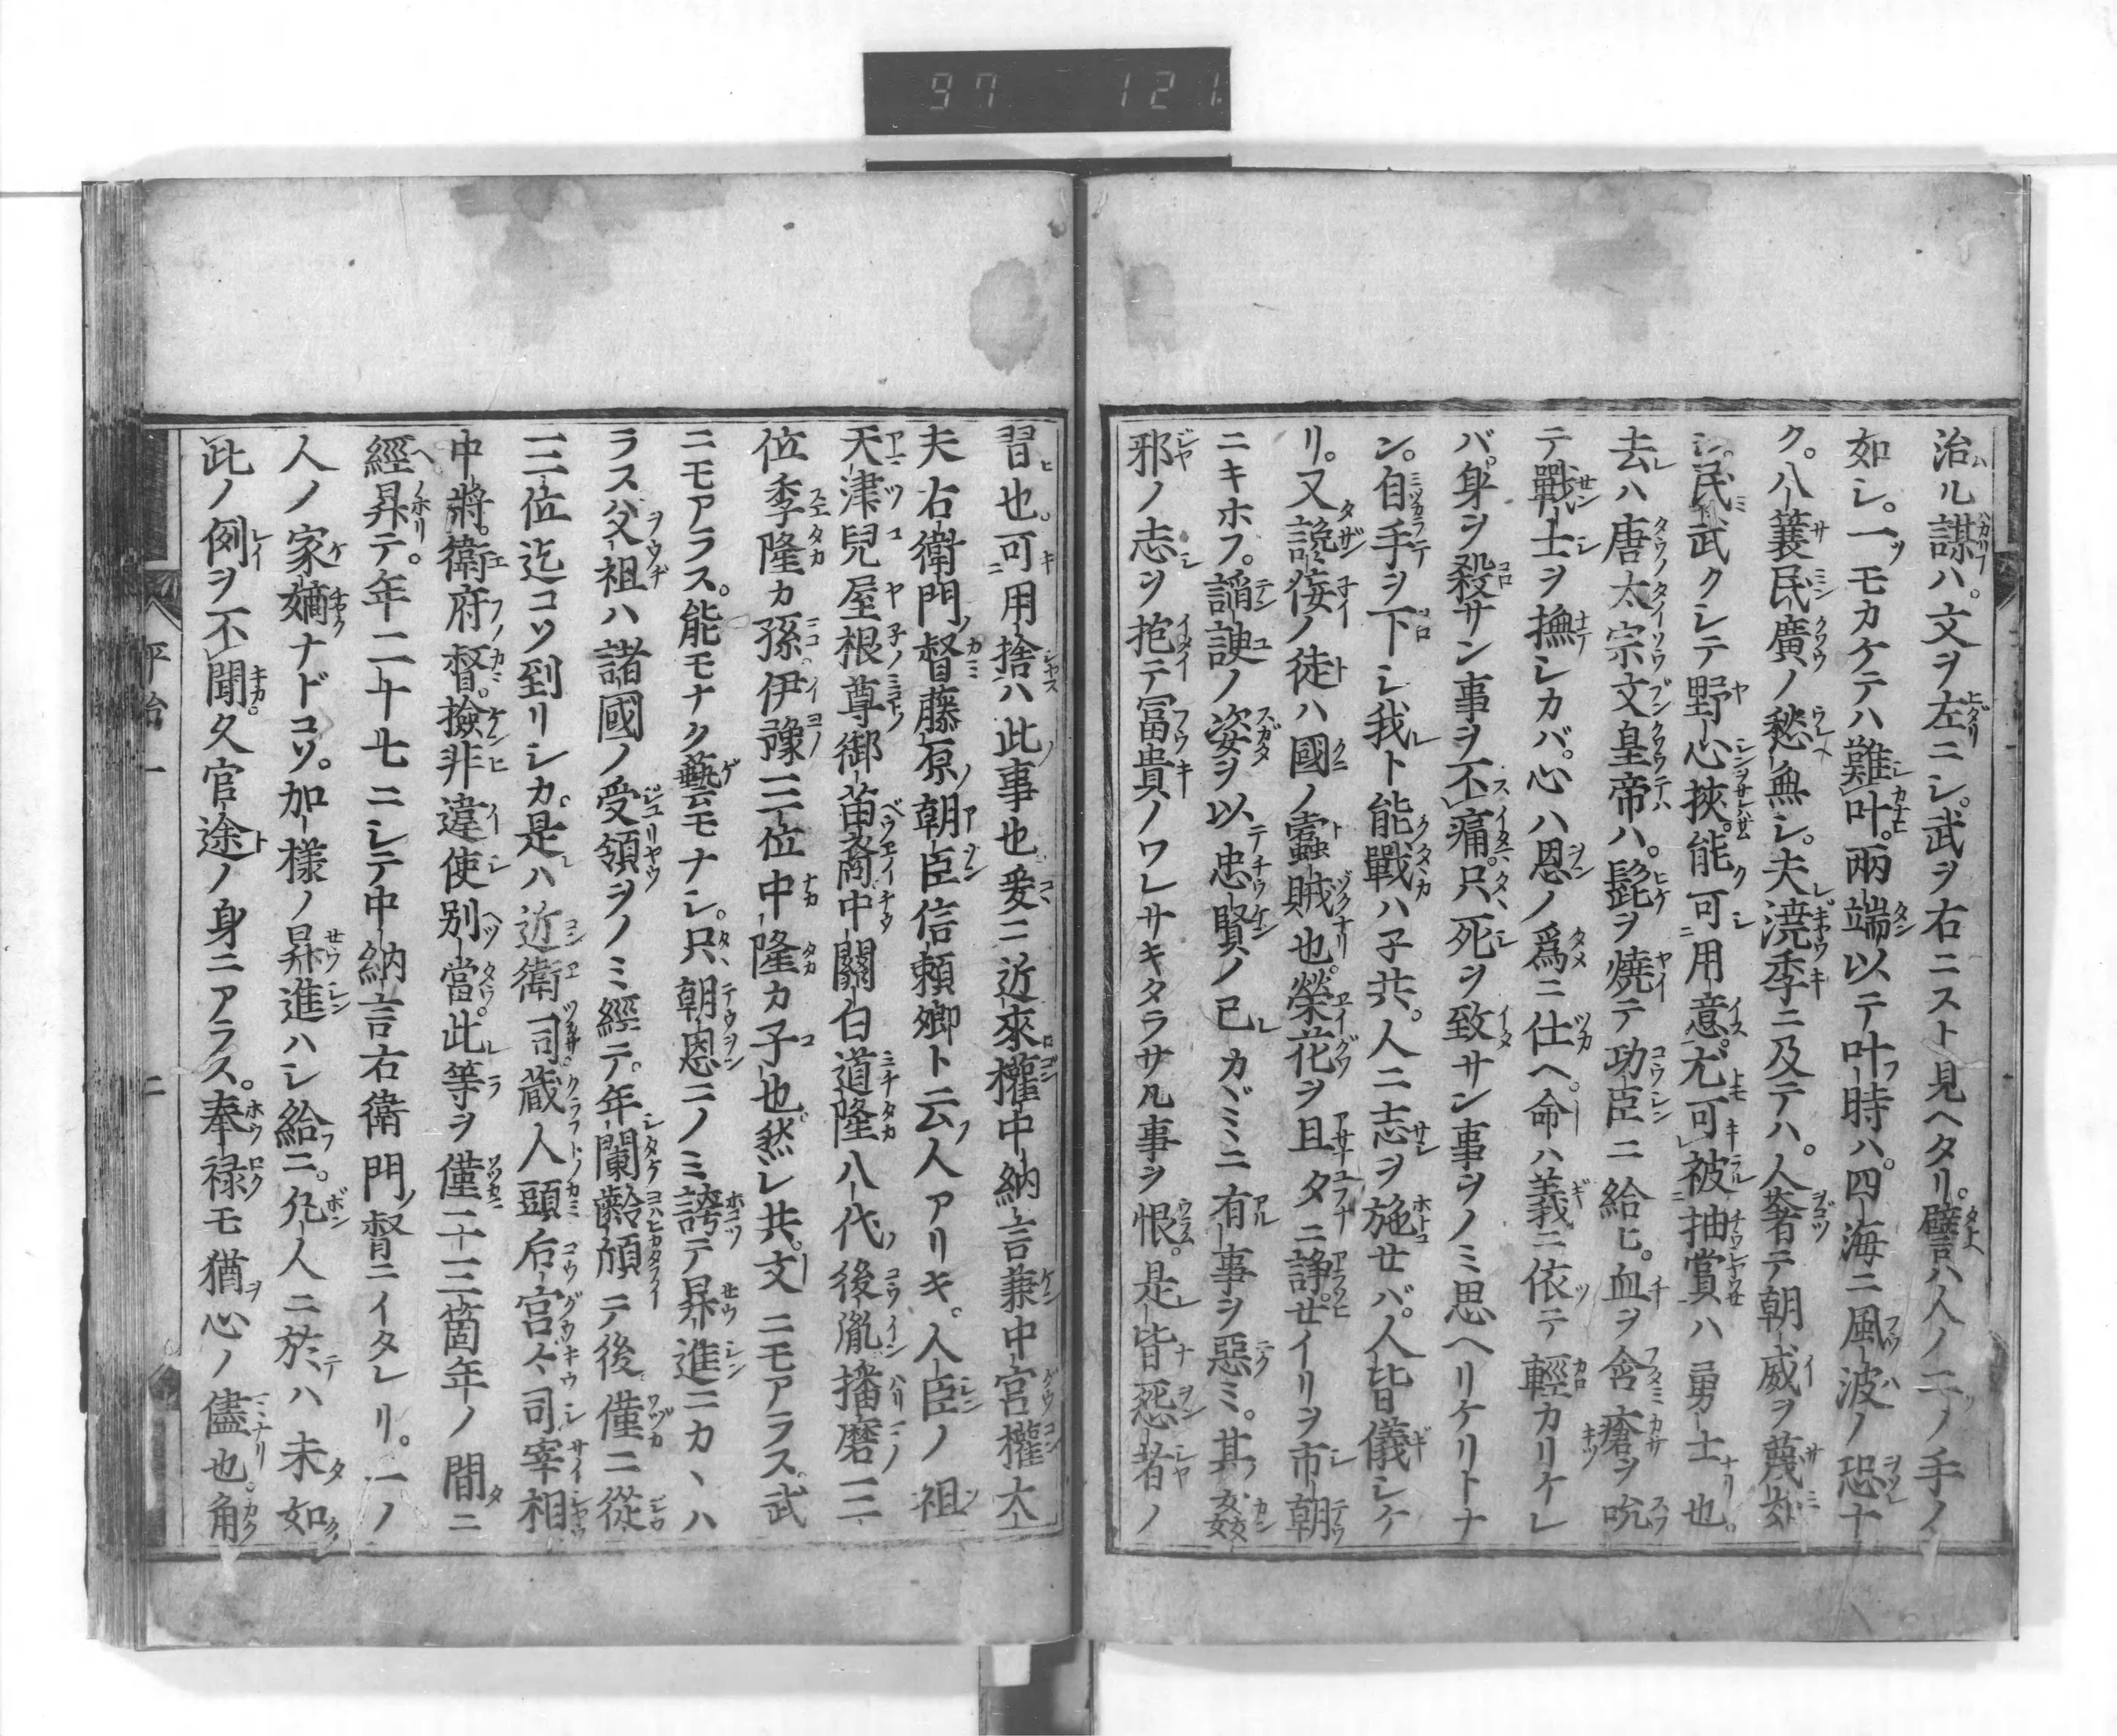 97 121
治ル謀ハ。文ヲ左ニシ。武ヲ右ニスト見ヘタリ。譬ハ人ノ二ノ手ノ
如シ。一モカケテハ難叶。兩端以テ叶時ハ。四海ニ風波ノ恐ナ
ク。八蓑民廣ノ愁無シ。夫澆季ニ及テハ。人奢テ朝威ヲ蔑如
シ。民武クシテ野心挾。能可用意。尤可被抽賞ハ勇士也。
去ハ唐太宗文皇帝ハ。髭ヲ燒テ功臣ニ給ヒ。血ヲ含瘡ヲ吮
テ戰士ヲ撫シカバ。心ハ恩ノ爲ニ仕ヘ。命ハ義ニ依テ輕カリケレ
バ。身ヲ殺サン事ヲ不痛。只死ヲ致サン事ヲノミ思ヘリケリトナ
ン。自手ヲ下シ。我ト能戰ハ子共。人ニ志ヲ施セバ。人皆儀シケ
リ。又讒侫ノ徒ハ國ノ蠹賊也。榮花ヲ旦タニ諍。世イリヲ市朝
ニキホフ。謟諛ノ姿ヲ以忠賢ノ已カミニ有事ヲ惡ミ。其姦
邪ノ志ヲ抱テ冨貴ノワレサキタラサル事ヲ恨。是皆怨者ノ
習也。可用捨ハ此事也爰ニ近來權中納言兼中宮權大
夫右衛門督藤原朝臣信頼卿ト云人アリキ。人臣ノ祖
天津兒屋根尊御苗裔中關白道隆八代後胤播磨三
位季隆カ孫伊豫三位中隆カ子也然レ共。文ニモアラス。武
ニモアラス。能モナク藝モナシ。只朝恩ニノミ誇テ昇進ニカヽハ
ラス父祖ハ諸國ノ受領ヲノミ經テ。年闌齡傾テ後僅ニ從
三位迄コソ到リシカ。是ハ近衛司蔵人頭后宮々司宰相
中將。衛府督。撿非違使別當。此等ヲ僅二十三箇年ノ間ニ
經昇テ。年二十七ニシテ中納言右衛門督ニイタレリ。一ノ
人ノ家嫡ナドコソ。加樣ノ昇進ハシ給フニ。凡人ニ於ハ未如
此ノ例ヲ不聞。久官途ノ身ニアラス。奉禄モ猶心ノ儘也。角
平治一 二